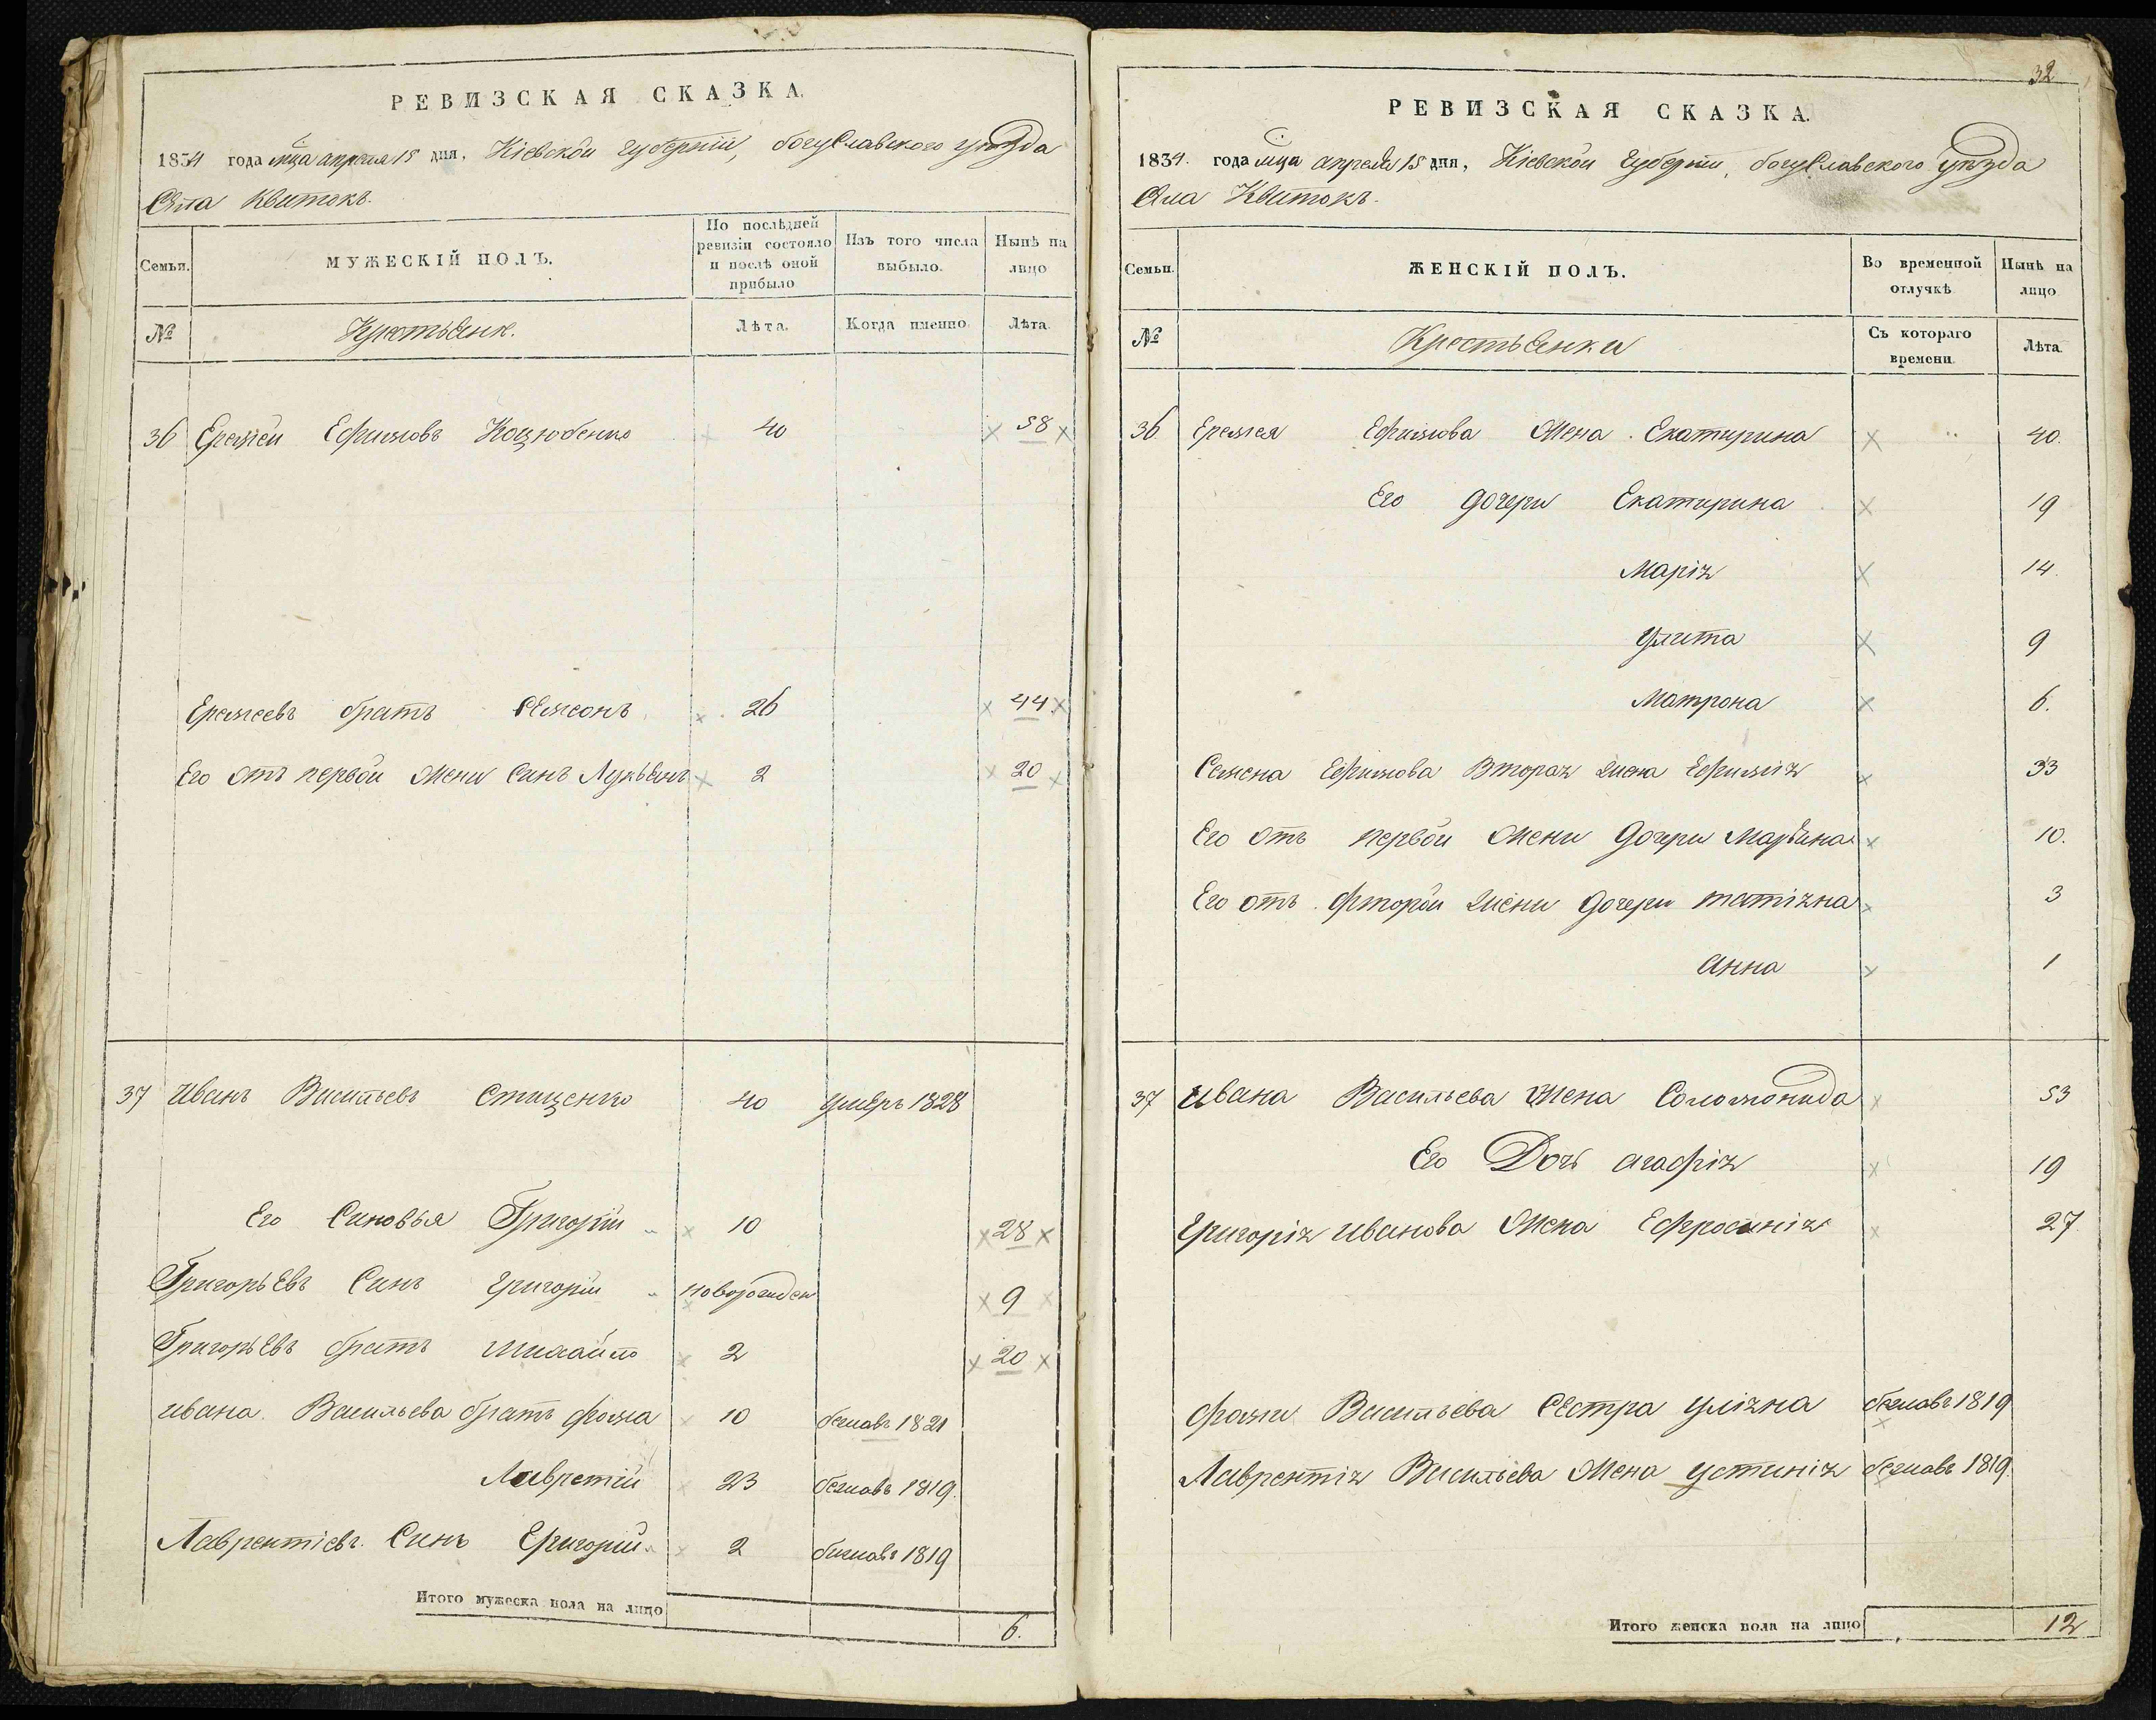 РЕВИЗСКАЯ СКАЗКА.
1834 года мца апреля 15 дня, Кіевской губерніи, богуславского уезда
Села Квитокъ.
Семьи.
МУЖЕСКІЙ ПОЛЪ.
По послѣдней ревизіи состояло и послѣ оной прибыло
Изъ того числа выбыло.
Нынѣ на лицо
№
Крестьене.
Лѣта.
Когда именно.
Лѣта.
36 Еремей Ефимовъ Коцюбенко 40 58
Еремеевъ братъ Семеонъ 26 44
Его отъ первой жени синъ Лукьенъ 2 20
37 Иванъ Васильевъ Стищенко 40 умеръ 1828
Его Синовья Григорій 10 28
Григорьевъ Синъ Григорій новорожден 9
Григорьевъ братъ Михайло 2 20
Ивана Васильева братъ Фома 10 бежавъ 1821
Лавретій 23 бежавъ 1819.
Лаврентіевъ Синъ Григорій 2 бижавъ 1819
Итого мужеска пола на лицо 6.
32
РЕВИЗСКАЯ СКАЗКА.
1834. года мца апреля 15 дня, Кіевской Губерніи, богуславского уезда
Села Квитокъ.
Семьи.
ЖЕНСКІЙ ПОЛЪ.
Во временной отлучкѣ
Нынѣ на лицо
№
Крестьенки
Съ котораго времени.
Лѣта.
36 Еремея Ефимова жена Екатирина 40.
Его дочери Екатирина 19
Марія 14.
Улита 9
Матрона 6.
Семена Ефимова Вторая жена Ефимія 33
Его отъ первой жени дочери Марьина 10.
Его отъ фторой жени дочери татіяна 3
Анна 1
37 Ивана Васильева жена Соломонида 53
Его Дочь агафія 19
Григорія иванова жена Ефросинія 27.
фоми Васильева Сестра уліяна бежавъ 1819
Лаврентія Васильева жена устинія бежавъ 1819.
Итого женска пола на лицо 12